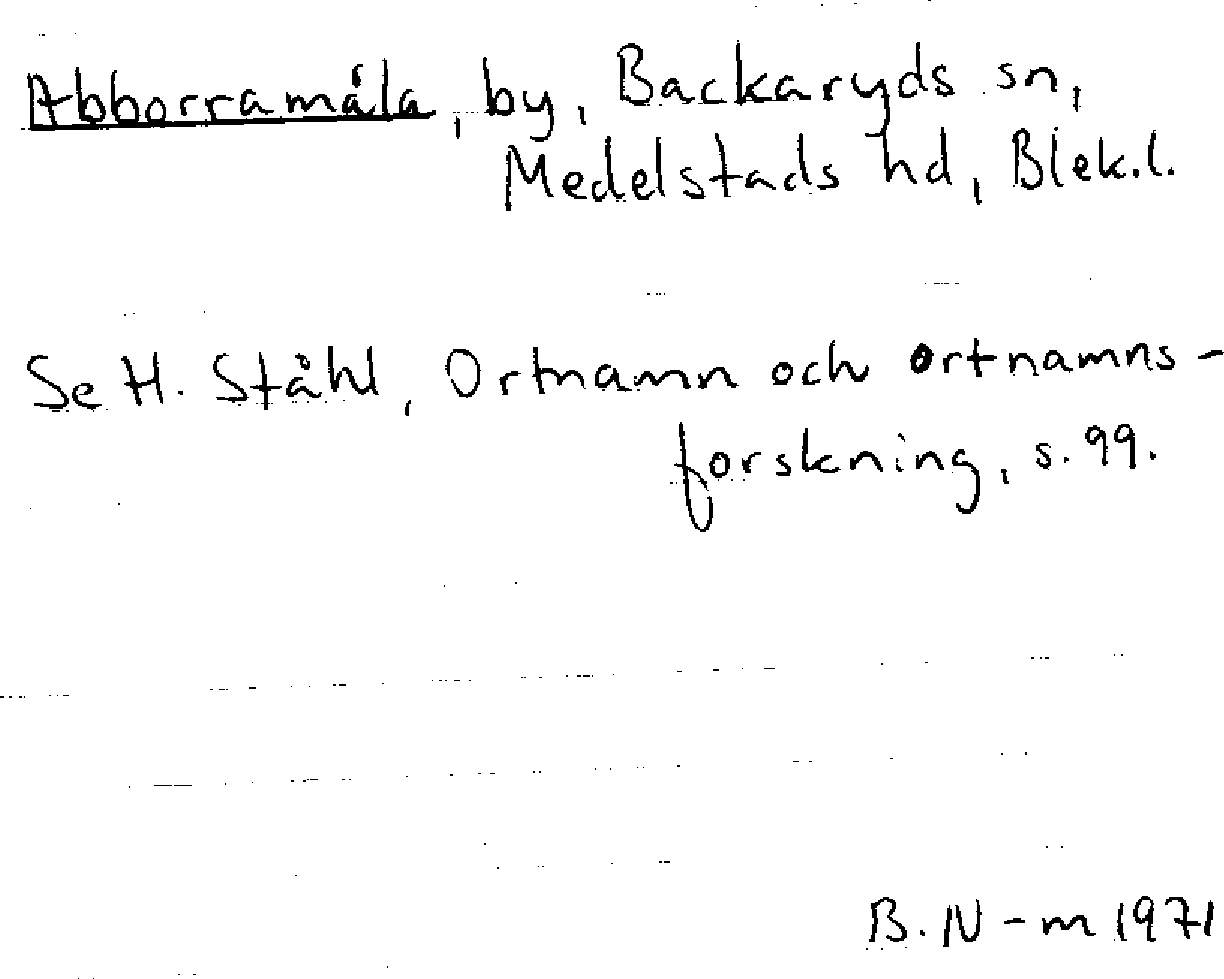 Abborramåla, by, Backaryds sn,
Medelstads hd, Blek.l.
Se H. Ståhl, Ortnamn och ortnamns-
forskning, s. 99.
B. N-m 1971